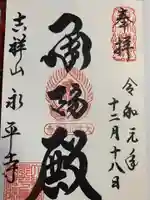 奉拝
令和元年
十二月十八日
承陽殿
吉祥山永平寺